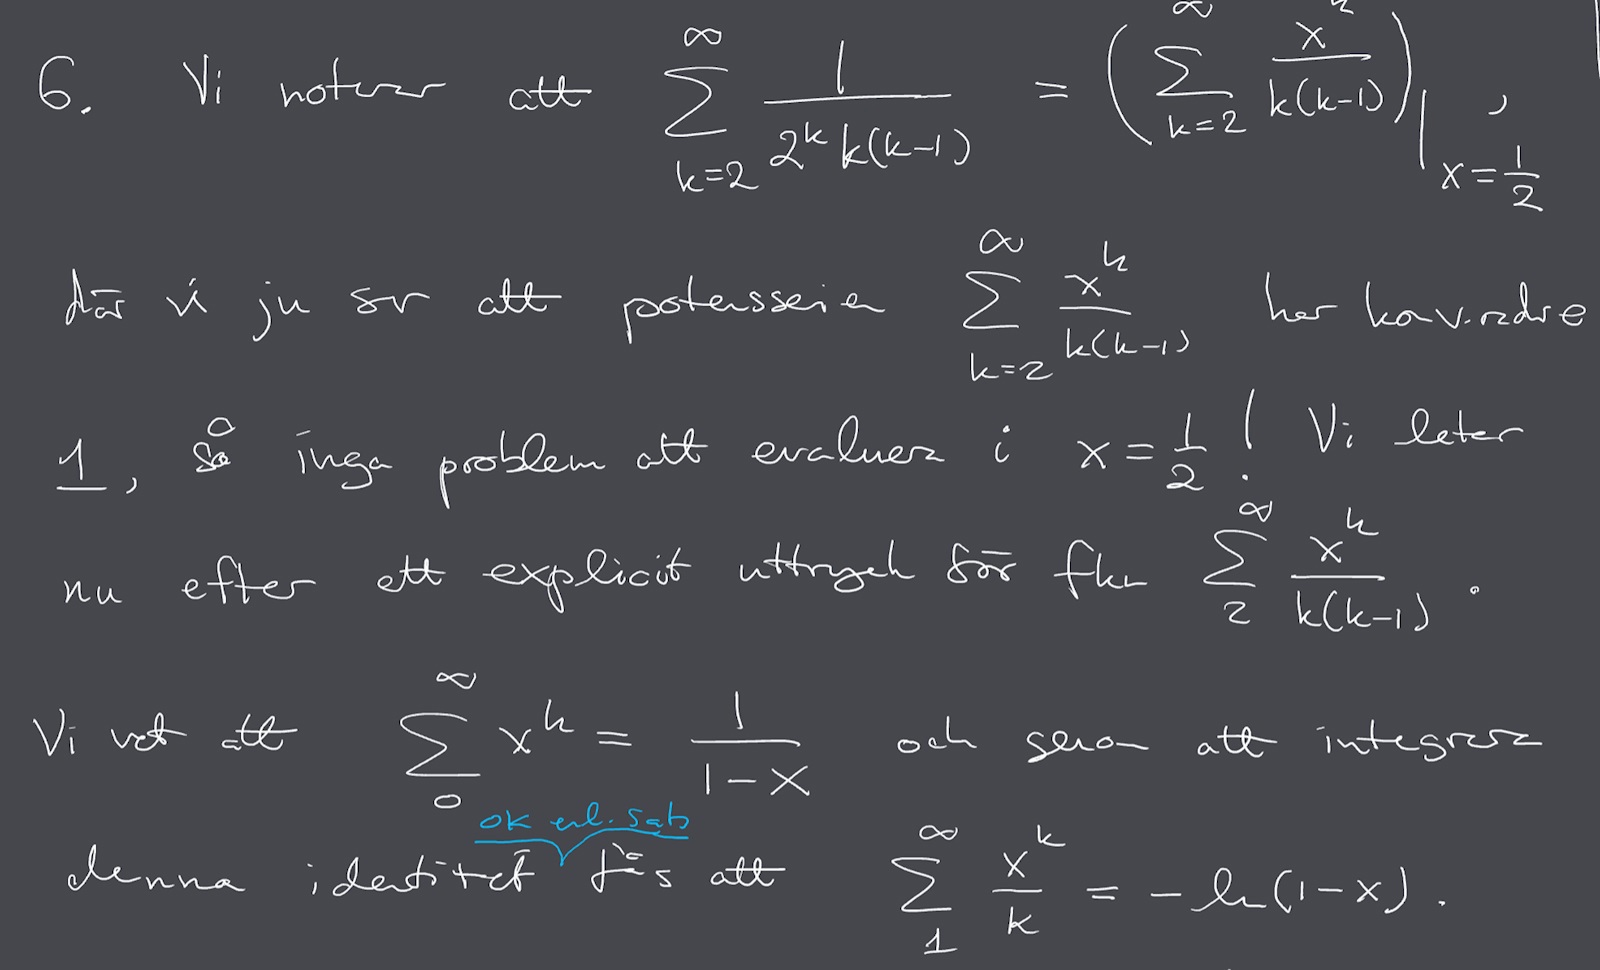 6. Vi noterar att \sum_{k=2}^{\infty} \frac{1}{2^k k(k-1)} = \left( \sum_{k=2}^{\infty} \frac{x^k}{k(k-1)} \right) \Big|_{x=\frac{1}{2}} ,
där vi ju ser att potensserien \sum_{k=2}^{\infty} \frac{x^k}{k(k-1)} har konv.radie
1, så inga problem att evaluera i x = \frac{1}{2}! Vi letar
nu efter ett explicit uttryck för fkn \sum_{2}^{\infty} \frac{x^k}{k(k-1)} .
Vi vet att \sum_{0}^{\infty} x^k = \frac{1}{1-x} och genom att integrera
ok enl. sats
denna identitet fås att \sum_{1}^{\infty} \frac{x^k}{k} = -\ln(1-x) .